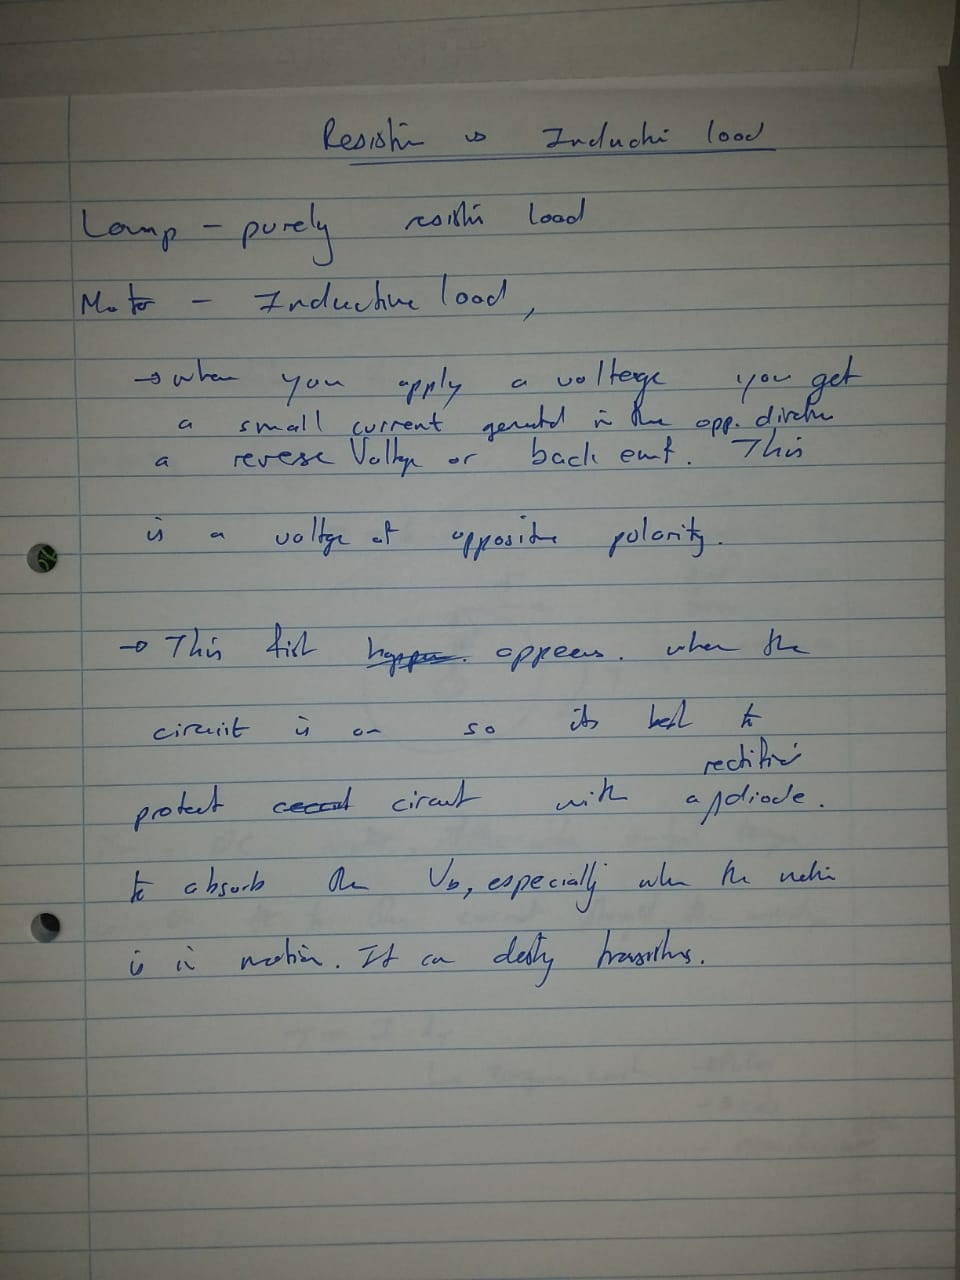 Resistive vs Inductive load
Lamp - purely resistive load
Motor - Inductive load,
→ when you apply a voltage you get
a small current generated in the opp. direction
a reverse Voltage or back emf. This
is a voltage of opposite polarity.
→ This first appears. when the
circuit is on so its best to
rectifier
protect circuit with a diode.
to absorb the Vb, especially when the
is in motion. It can destroy transistors.